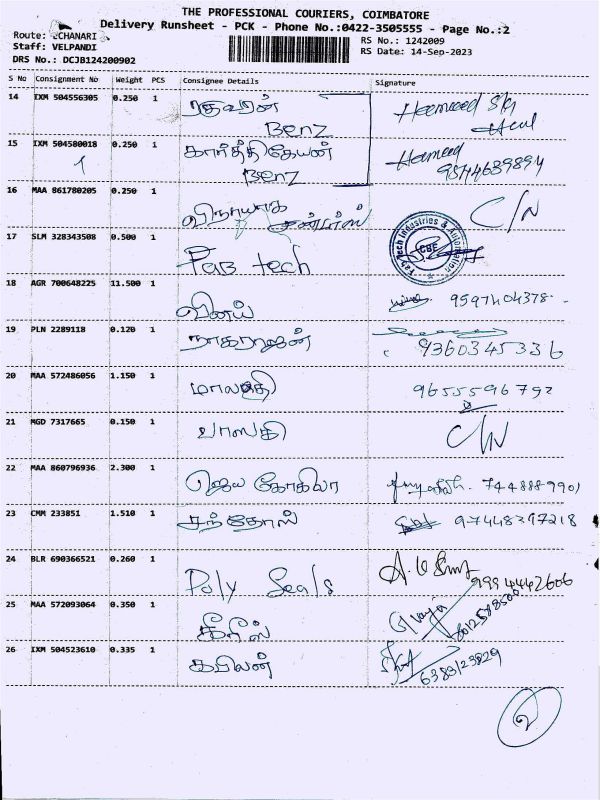 THE PROFESSIONAL COURIERS, COIMBATORE
Delivery Runsheet - PCK - Phone No.:0422-3505555 - Page No.:2
Route: ECHANARI
RS No.: 1242009
Staff: VELPANDI
RS Date: 14-Sep-2023
DRS No.: DCJB124200902
S No Consignment No Weight PCS Consignee Details Signature
14 IXM 504556305 0.250 1 ரகுவரன் Hameed
Benz
15 IXM 504580018 0.250 1 கார்த்திகேயன் Hameed
1 Benz 9874689894
16 MAA 861780205 0.250 1 விநாயகா C/N
17 SLM 328343508 0.500 1 Fab tech Fab Tech Industries & Automation CBE
18 AGR 700648225 11.500 1 வினய் 9597404378
19 PLN 2289118 0.120 1 நாகராஜன் 9360345336
20 MAA 572486056 1.150 1 மாலதி 9655596792
21 MGD 7317665 0.150 1 வாஸகி C/N
22 MAA 860796936 2.300 1 ஜெய கோகிலா 7448889901
23 CMM 233851 1.510 1 சந்தோஸ் 9744837218
24 BLR 690366521 0.260 1 Poly Seals 9994442606
25 MAA 572093064 0.350 1 கிரீஸ் 8012588500
26 IXM 504523610 0.335 1 கபிலன் 6383123829